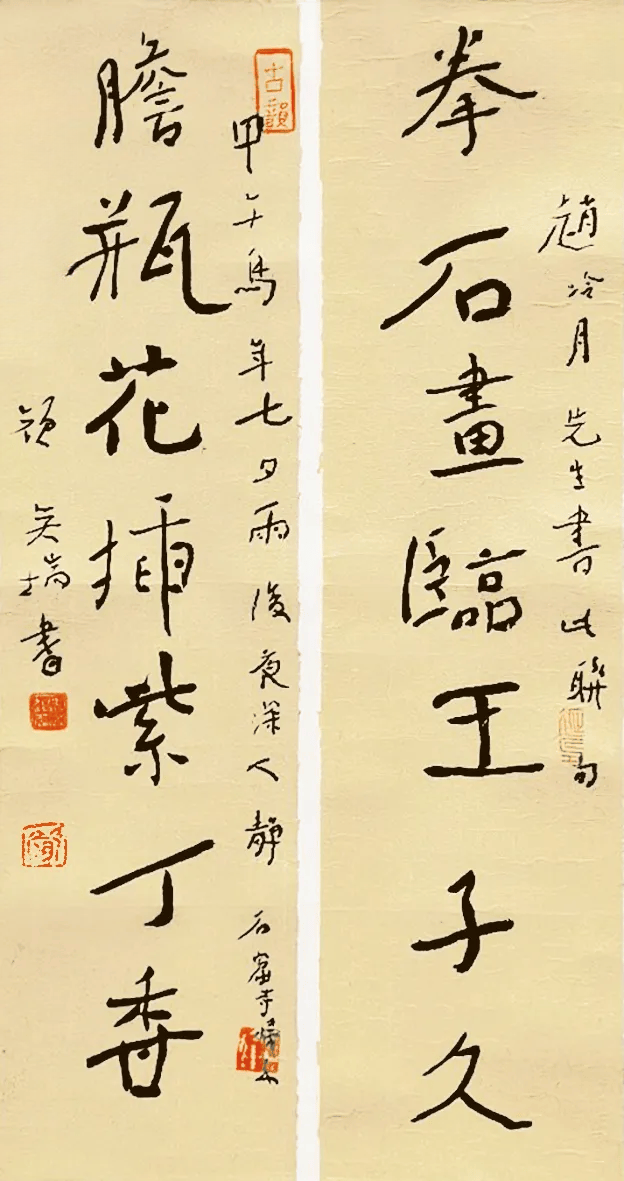 趙冷月 先生書此聯句
拳石畫臨王子久
膽瓶花插紫丁香
古韻
甲午馬年七夕雨後夜深人靜 石窟寺
吳瑞書